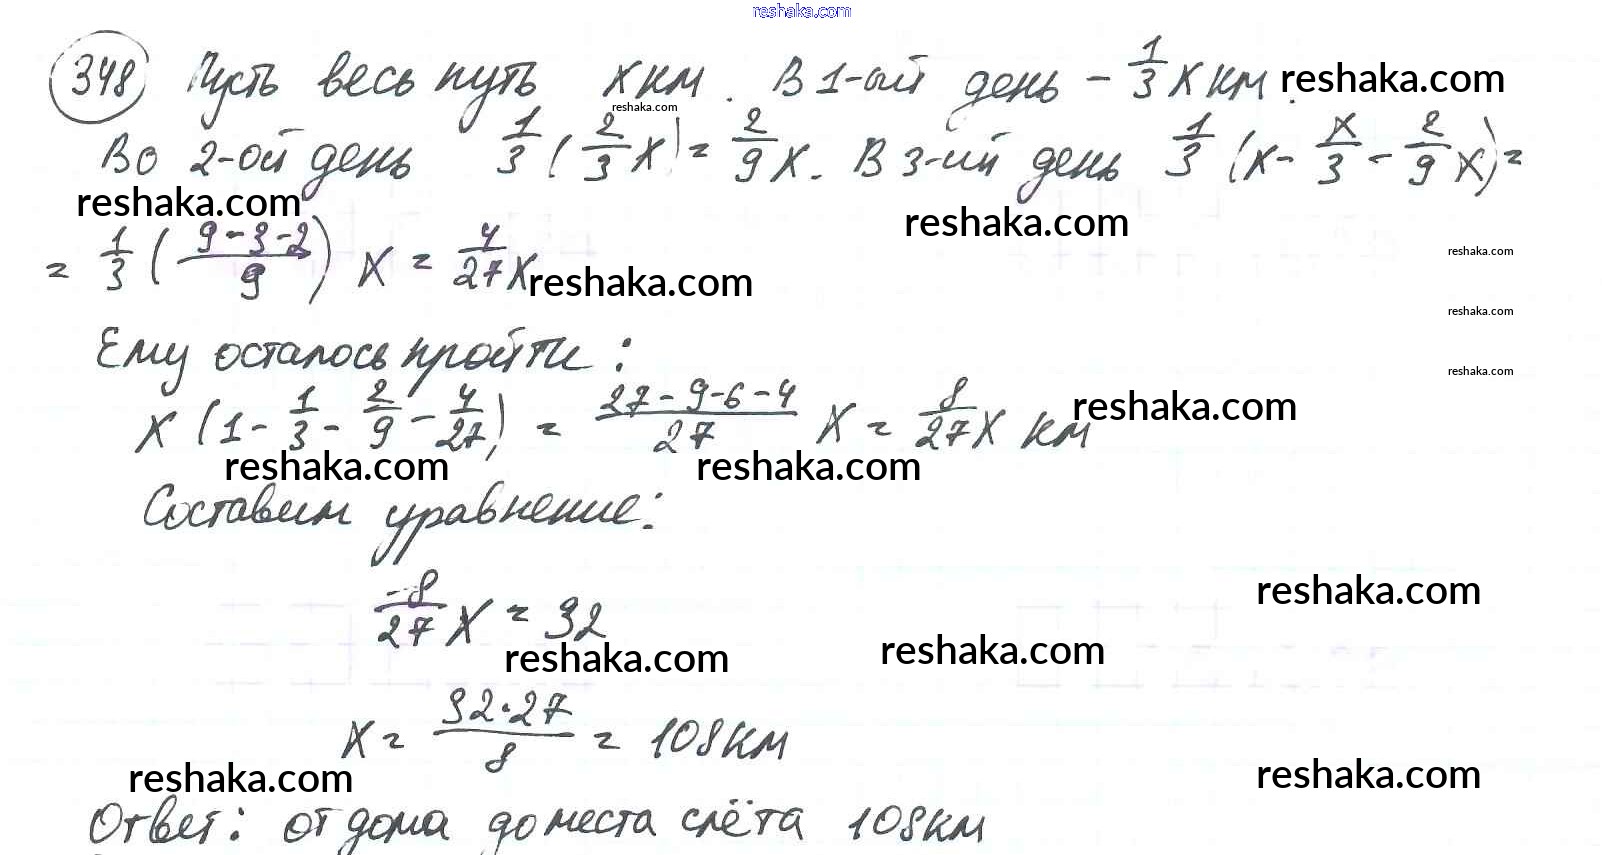 reshaka.com
348 Пусть весь путь x км. В 1-ый день - 1/3 x км. reshaka.com
reshaka.com
Во 2-ой день 1/3 (2/3 x) = 2/9 x. В 3-ий день 1/3 (x - x/3 - 2/9 x) =
reshaka.com reshaka.com
= 1/3 ((9-3-2)/9) x = 4/27 x reshaka.com
reshaka.com
reshaka.com
Ему осталось пройти:
reshaka.com
x (1 - 1/3 - 2/9 - 4/27) = (27-9-6-4)/27 x = 8/27 x км reshaka.com
reshaka.com reshaka.com
Составим уравнение:
-8/27 x = 32 reshaka.com
reshaka.com reshaka.com
x = 32·27/8 = 108 км
reshaka.com reshaka.com
Ответ: от дома до места слёта 108 км